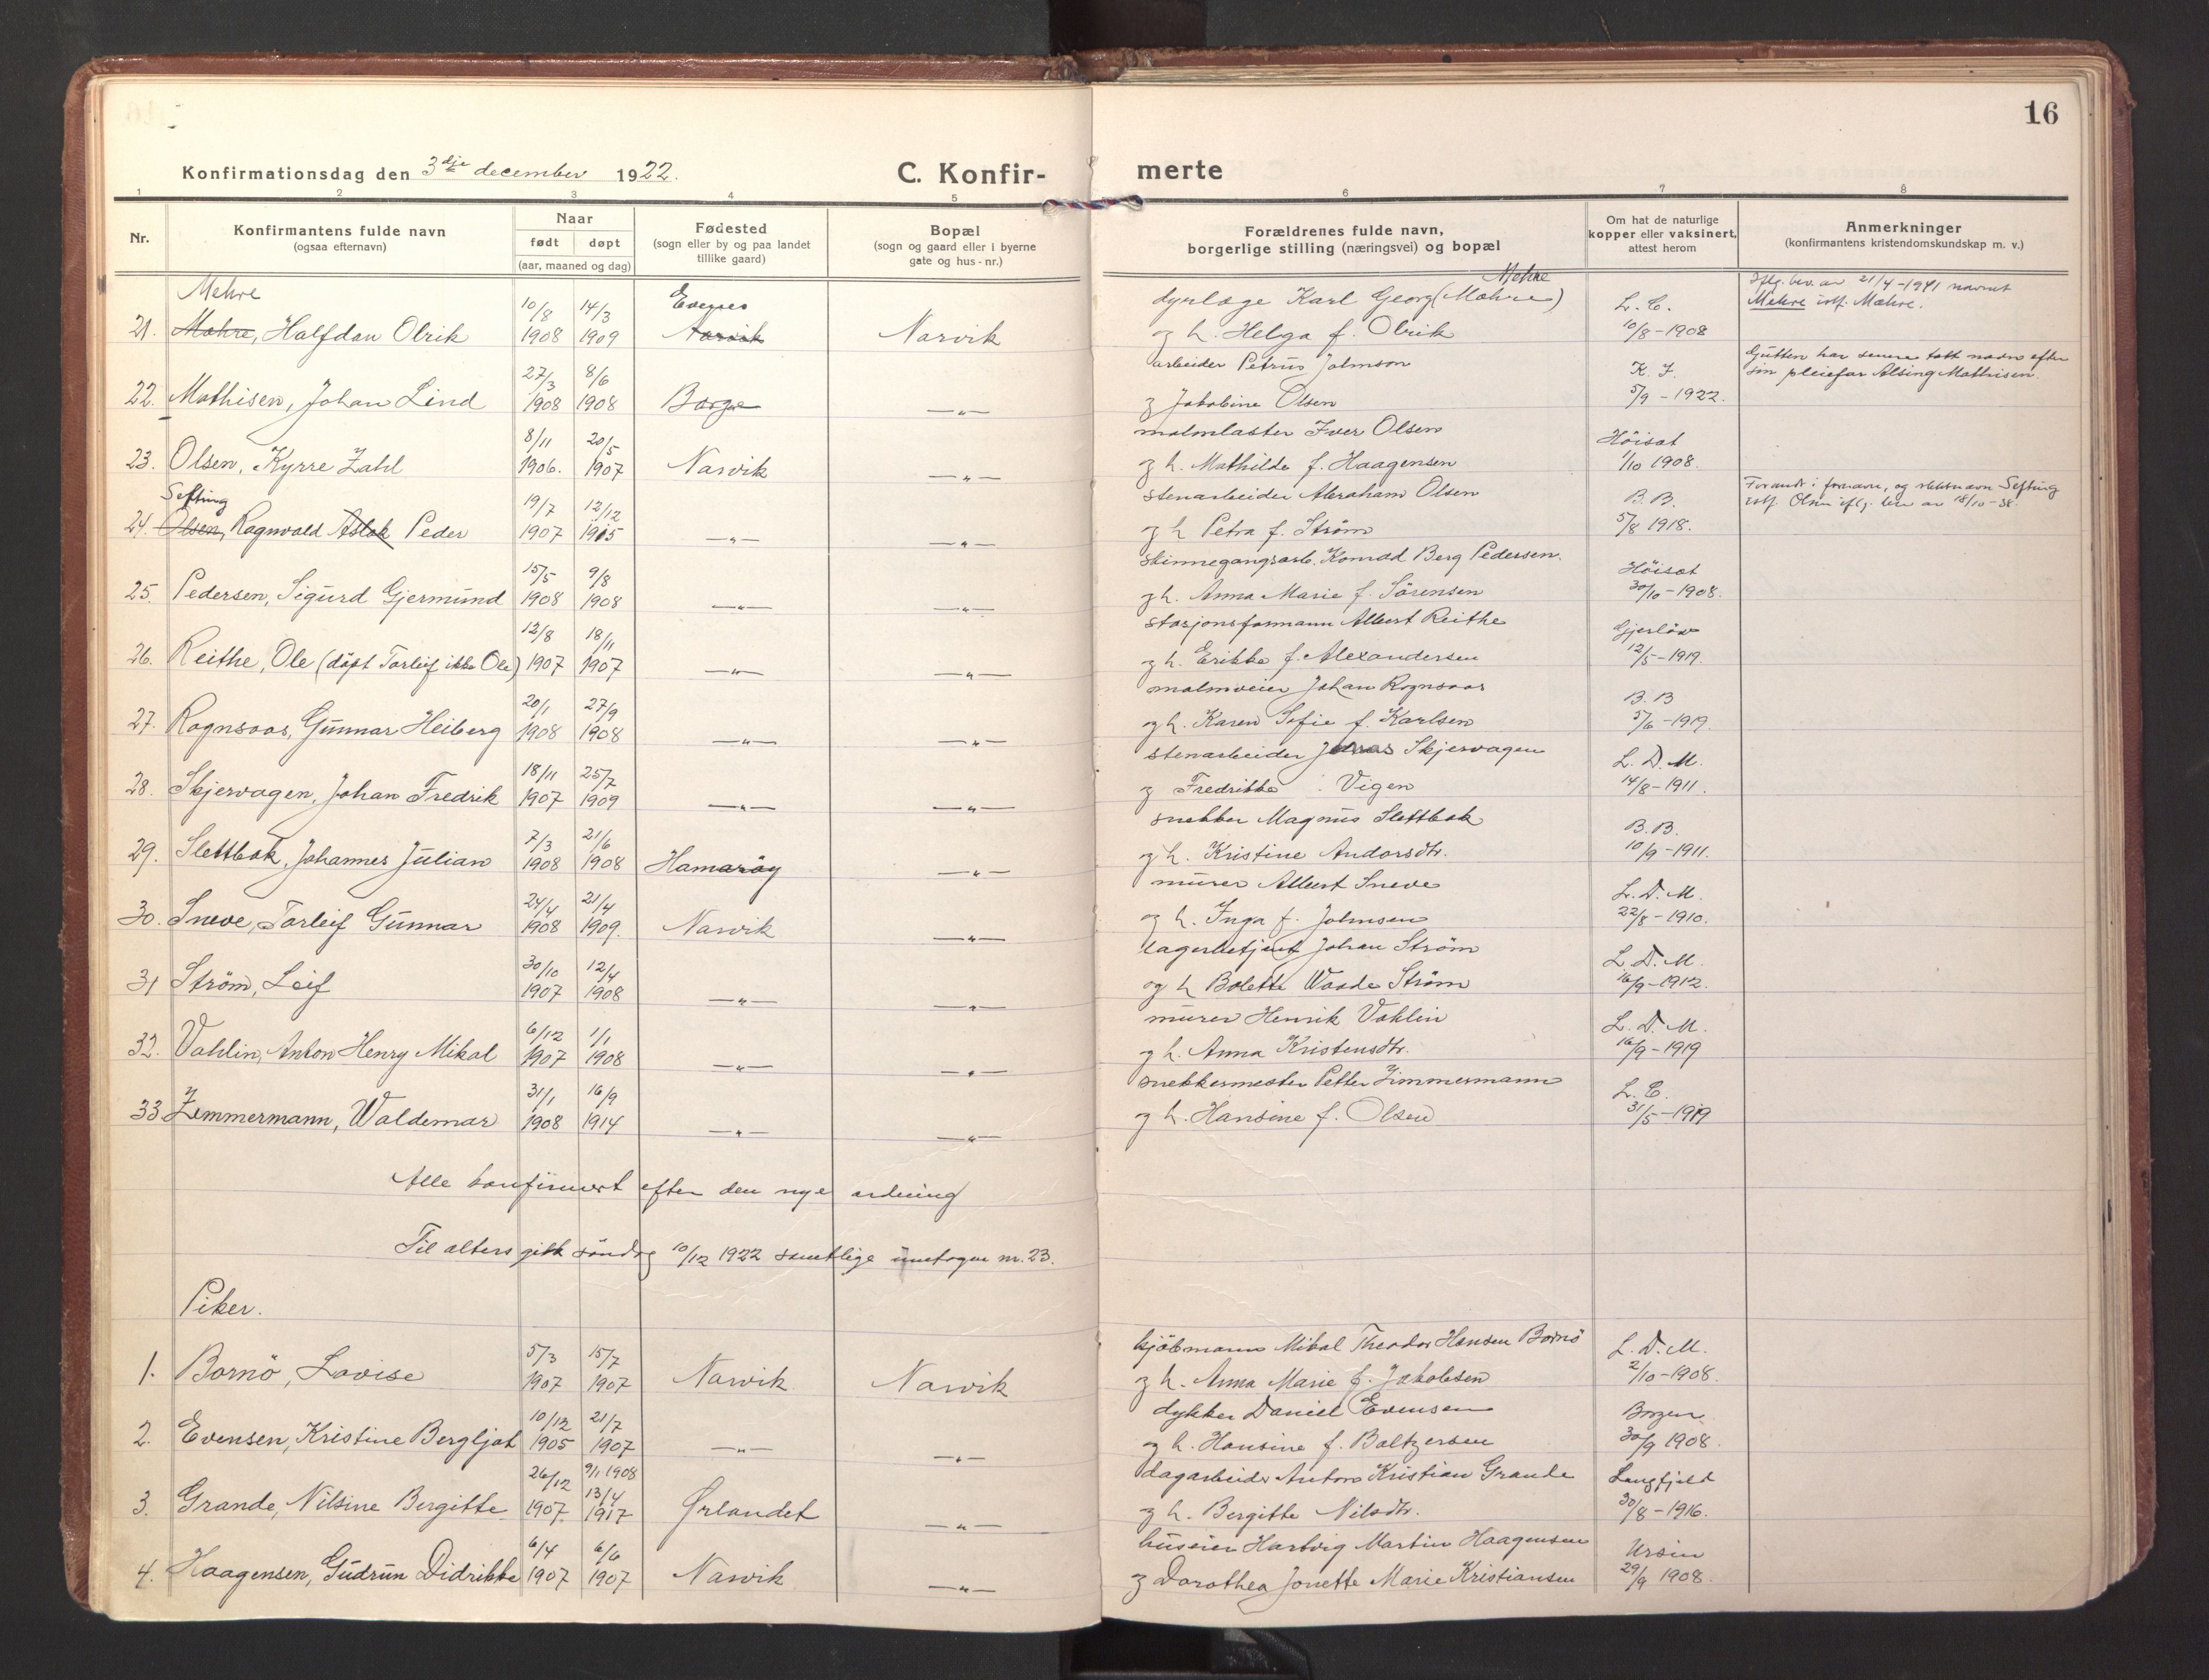 16
Konfirmationsdag den 3dje december 1922.
C. Konfir-
merte
1 2 3 4 5 6 7 8
Nr.
Konfirmantens fulde navn
(ogsaa efternavn)
Naar
født døpt
(aar, maaned og dag)
Fødested
(sogn eller by og paa landet
tillike gaard)
Bopæl
(sogn og gaard eller i byerne
gate og hus-nr.)
Forældrenes fulde navn,
borgerlige stilling (næringsvei) og bopæl
Om hat de naturlige
kopper eller vaksinert,
attest herom
Anmerkninger
(konfirmantens kristendomskundskap m. v.)
Mehre 10/8 14/3 Evenes dyrlæge Karl Georg (Mæhre) Mehre L. C. Iflg. bev. av 21/4-1941 navnet
21. Mæhre, Halfdan Olrik 1908 1909 Narvik Narvik og h. Helga f. Olrik 10/8-1908 Mehre istf. Mæhre.
27/3 8/6 arbeider Petrus Johnson K. J. Gutten har senere tatt navn efter
22. Mathisen, Johan Lind 1908 1908 Borge —„— og Jakobine Olsen 5/9-1922. sin pleiefar Alsing Mathisen.
8/11 20/5 malmlaster Iver Olsen Höisat
23. Olsen, Kyrre Zahl 1906. 1907 Narvik —„— og h. Mathilde f. Haagensen 1/10 1908.
Sefting 19/7 12/12 stenarbeider Abraham Olsen B. B. Forandr. i fornavn, og slektsnavn Sefting
24. Olsen, Ragnvald Aslak Peder 1907 1915 —„— —„— og h Petra f. Ström 5/8 1918. istf. Olsen iflg. bev av 18/10-38.
15/5 9/8 skinnegangsarb. Konrad Berg Pedersen. Höisat
25. Pedersen, Sigurd Gjermund 1908 1908 —„— —„— og h. Anna Marie f. Sörensen 30/10-1908.
12/8 18/11 stasjonsformann Albert Reithe Gjerlöw
26. Reithe, Ole (döpt Torleif ikke Ole) 1907 1907 —„— —„— og h. Erikke f. Alexandersen 12/5-1919.
20/1 27/9 malmveier Johan Rognsaas B. B
27. Rognsaas, Gunnar Heiberg 1908 1908 —„— —„— og h. Karen Sofie f. Karlsen 5/6-1919.
18/11 25/7 stenarbeider Jonas Skjervagen L. D. M.
28. Skjervagen, Johan Fredrik 1907 1909 —„— —„— og Fredrikke Vigen 14/8-1911.
7/3 21/6 snekker Magnus Slettbak B. B.
29. Slettbak, Johannes Julian 1908 1908 Hamaröy —„— og h. Kristine Andorsdtr. 10/9-1911.
24/4 21/4 murer Albert Sneve L. D. M.
30. Sneve, Torleif Gunnar 1908 1909. Narvik —„— og h. Inga f. Johnsen 22/8-1910.
30/10 12/4 lagerbetjent Johan Ström L. D. M.
31 Ström, Leif 1907 1908 —„— —„— og h Bolette Waade Ström 16/9-1912.
6/12 1/1 murer Henrik Vahlin L. D. M.
32. Vahlin, Anton Henry Mikal 1907 1908 —„— —„— og h. Anna Kristensdtr. 16/9-1919
31/1 16/9 snekkermester Petter Zimmermann L. C.
33 Zimmermann, Waldemar 1908 1914 —„— —„— og h. Hansine f. Olsen 31/5-1919
Alle konfirmert efter den nye ordning
Til alters gikk söndag 10/12 1922 samtlige undtagen nr. 23.
Piker.
5/3 15/7 kjöbmann Mikal Theodor Hansen Bornö L. D. M.
1. Bornö, Lovise 1907 1907 Narvik Narvik og h. Anna Marie f. Jakobsen 2/10-1908.
10/12 21/7 dykker Daniel Evensen Borgen
2. Evensen, Kristine Bergljot 1905 1907 —„— —„— og h. Hansine f. Baltzersen 30/9 1908.
26/12 9/1 1908 13/4 dagarbeider Anton Kristian Grande Langfjeld
3. Grande, Nilsine Bergitte 1907 1917 Ørlandet —„— og h. Bergitte Nilsdtr. 30/8-1916.
6/4 6/6 huseier Hartvig Martin Haagensen Ursin
4. Haagensen, Gudrun Didrikke 1907 1907 Narvik —„— og Dorothea Jonette Marie Kristiansen 29/9 1908.